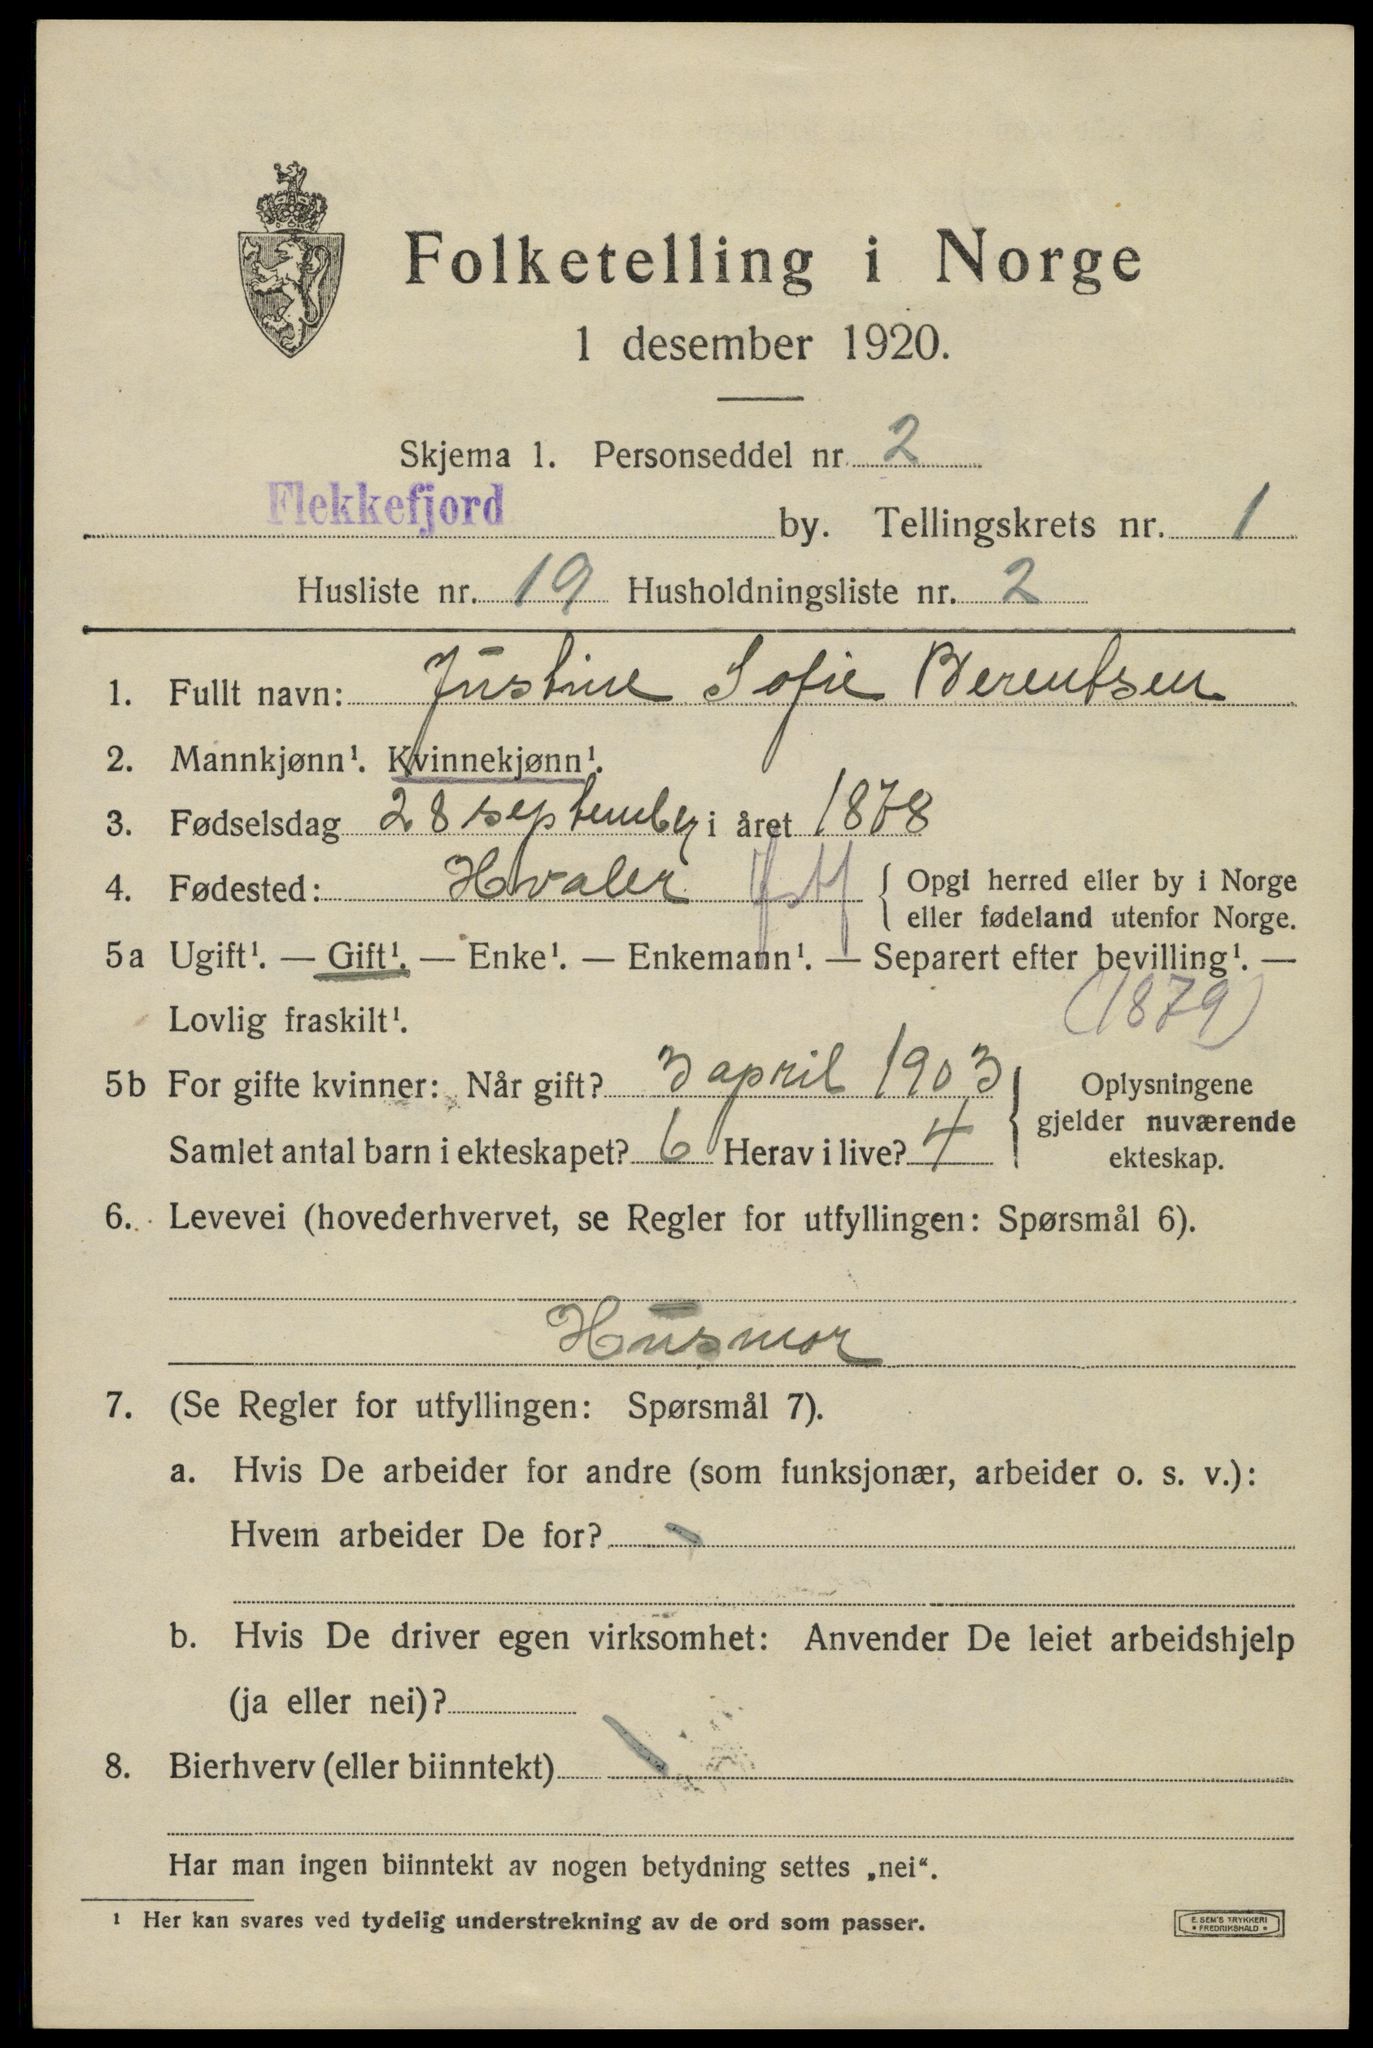 Folketelling i Norge
1 desember 1920.
Skjema 1. Personseddel nr. 2
Flekkefjord by. Tellingskrets nr. 1
Husliste nr. 19 Husholdningsliste nr. 2
1. Fullt navn: Justine Sofie Berentsen
2. Mannkjønn¹. Kvinnekjønn¹.
3. Fødselsdag 28 september i året 1878
4. Fødested: Hvaler Østf { Opgi herred eller by i Norge
eller fødeland utenfor Norge.
5a Ugift¹. — Gift¹. — Enke¹. — Enkemann¹. — Separert efter bevilling¹. —
Lovlig fraskilt¹. (1879)
5b For gifte kvinner: Når gift? 3 april 1903 } Oplysningene
gjelder nuværende
Samlet antal barn i ekteskapet? 6 Herav i live? 4 ekteskap.
6. Levevei (hovederhvervet, se Regler for utfyllingen: Spørsmål 6).
Husmor
7. (Se Regler for utfyllingen: Spørsmål 7).
a. Hvis De arbeider for andre (som funksjonær, arbeider o. s. v.):
Hvem arbeider De for?
b. Hvis De driver egen virksomhet: Anvender De leiet arbeidshjelp
(ja eller nei)?
8. Bierhverv (eller biinntekt)
Har man ingen biinntekt av nogen betydning settes „nei“.
¹ Her kan svares ved tydelig understrekning av de ord som passer.
E. SEM'S TRYKKERI
• FREDRIKSHALD •